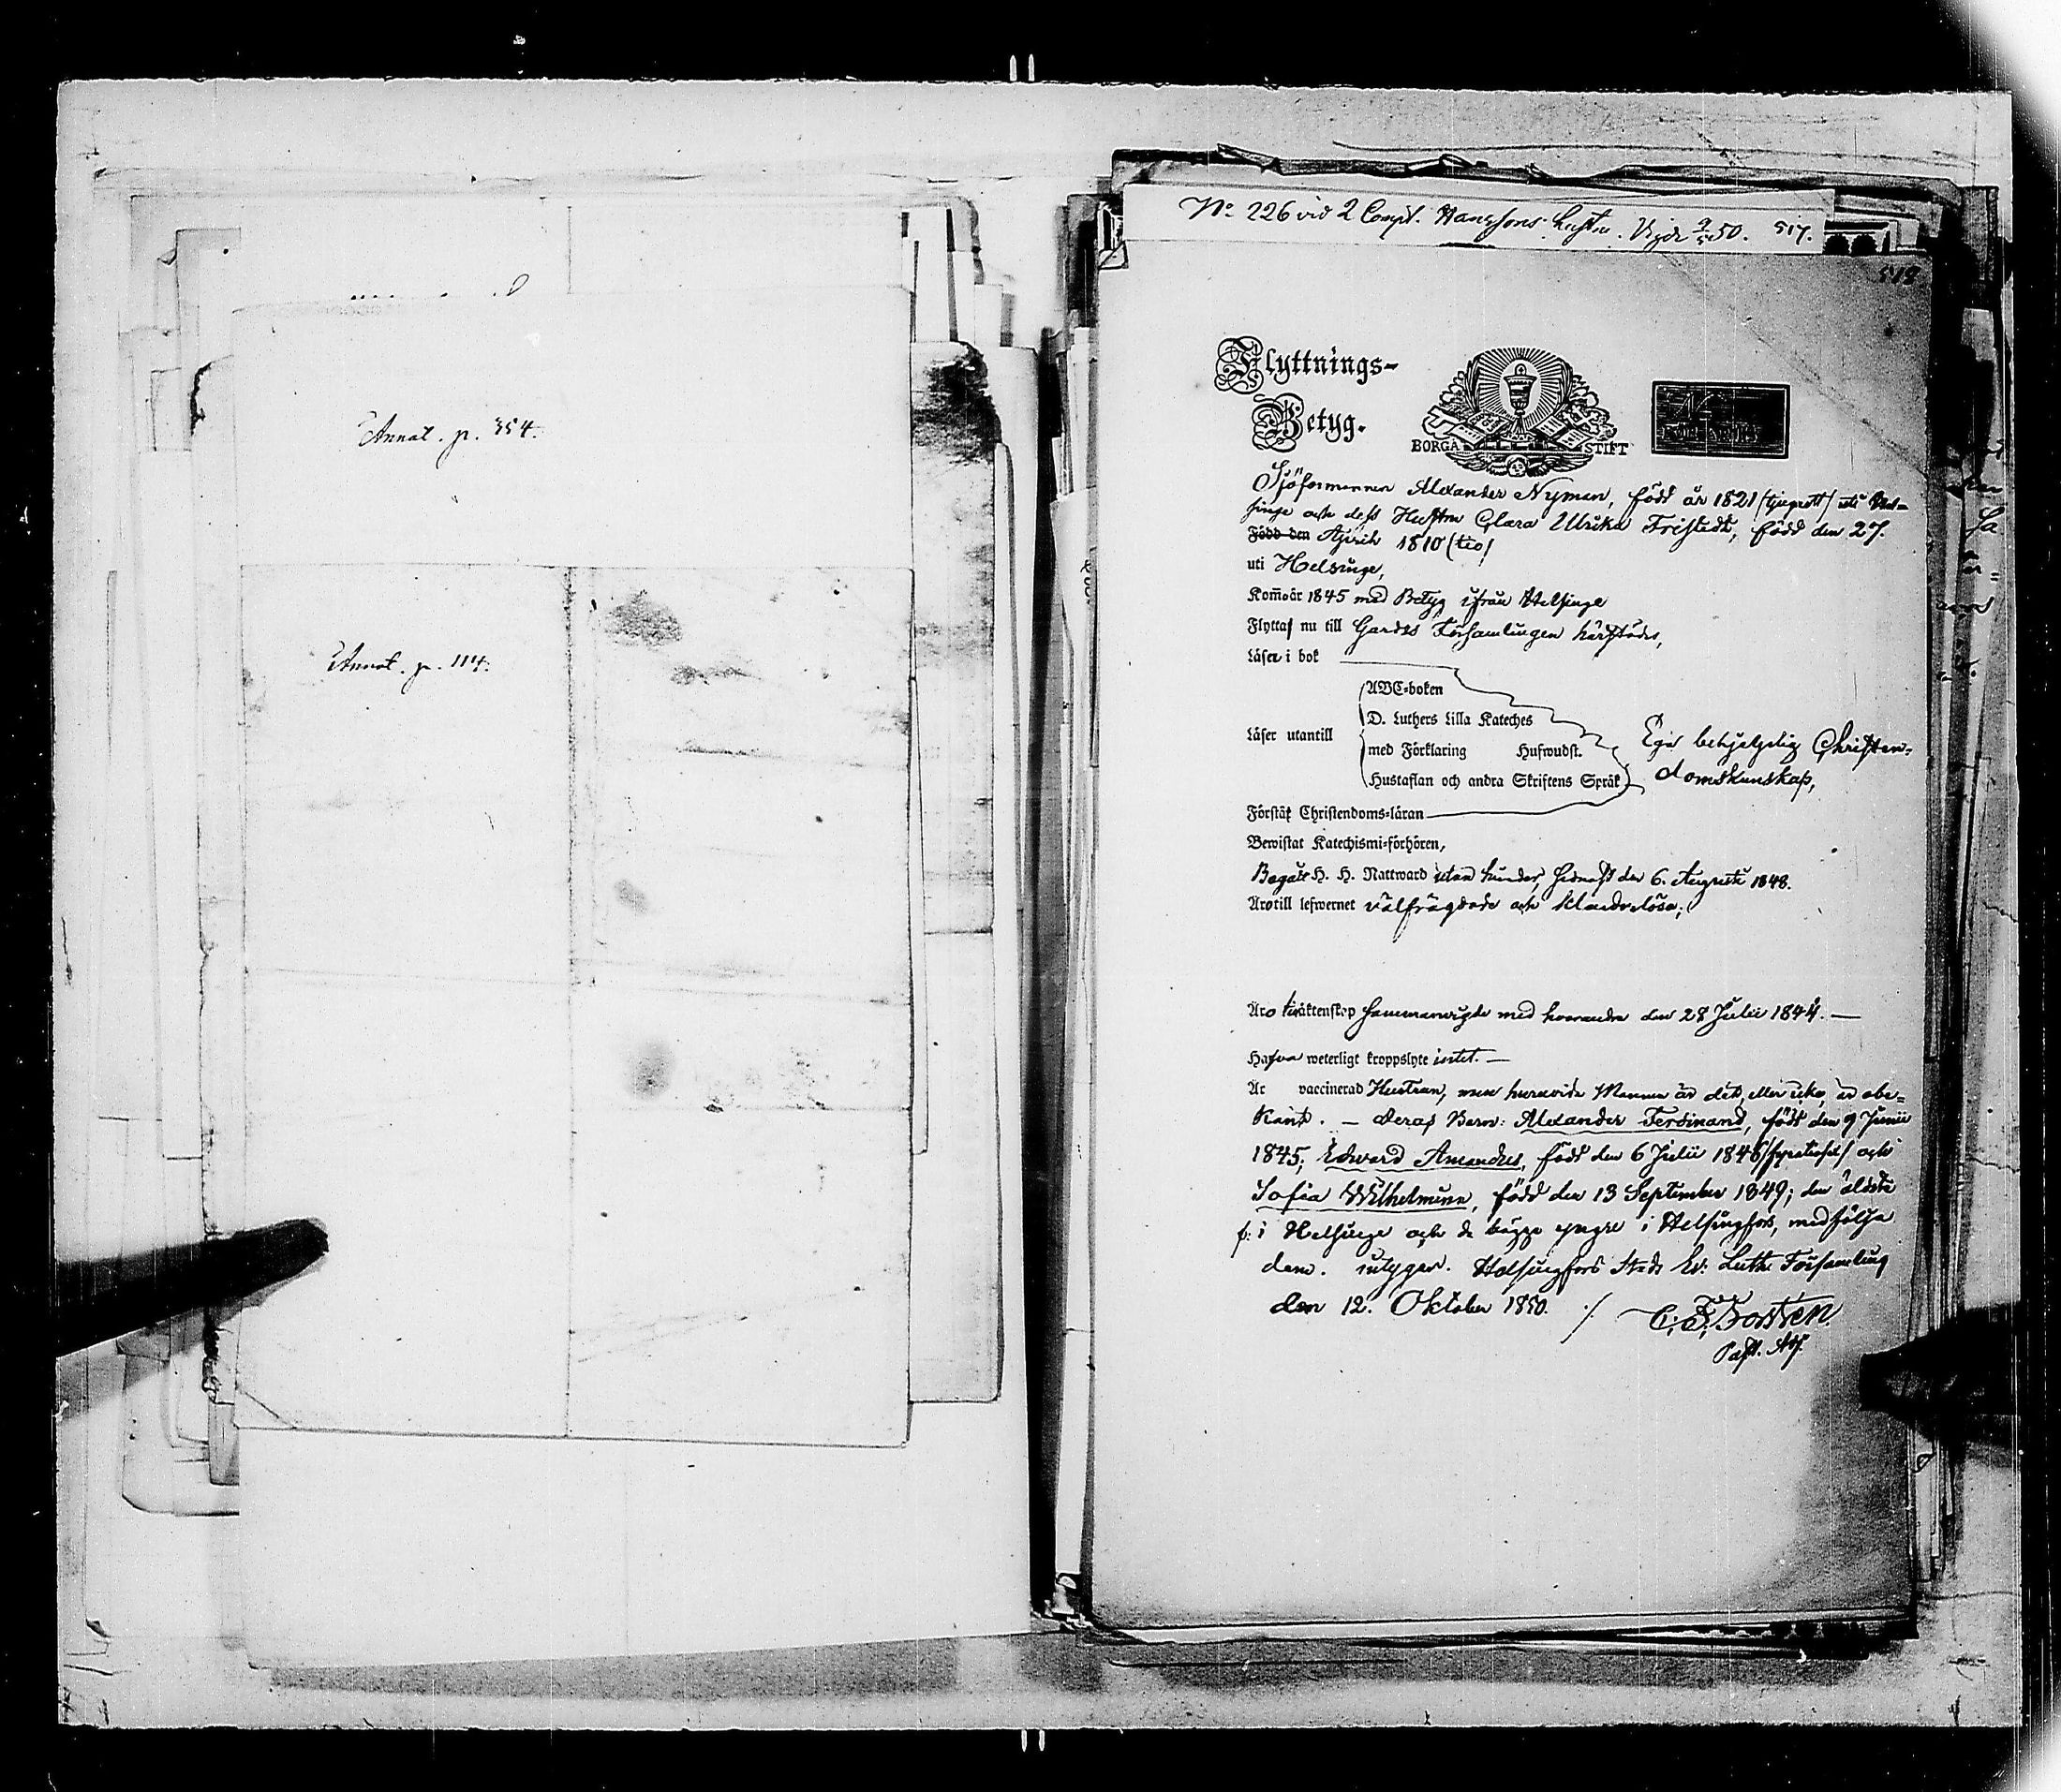 Annot. p. 354.
Annot. p. 114.
No 226 vid 2 Comp. Hanssons hustru. Vigde 9/5 50. 517.
518
Flyttnings-
Betyg.
BORGÅ STIFT
Sjöförmannen Alexander Nyman, född år 1821 (tjuguett) uti Hel-
singe och dess Hustru Clara Ulrika Fristedt, född den 27.
Född den April 1810 (tio)
uti Helsinge,
Kom̄o år 1845 med Betyg ifrån Helsinge
Flyttas nu till Gardes Församlingen härstädes,
Läser i bok
ABC-boken
D. Luthers Lilla Kateches
Läser utantill
med Förklaring Hufwudst.
Hustaflan och andra Skriftens Språk
Ega behjelplig Christen-
domskunskap,
Förstår Christendoms-läran
Bewistat Katechismi-förhören,
Begått H. H. Nattward utan hinder, sednast den 6. Augusti 1848.
Äro till lefwernet välfrägdade och klanderlösa;
Äro i äktenskap sammanvigde med hvarandra den 28 Julii 1844. —
Hafva weterligt kroppslyte intet. —
Är vaccinerad Hustrun, men huruvida Mannen är det, eller icke, är obe-
kant. — Deras Barn: Alexander Ferdinand, född den 9 Junii
1845; Edvard Amandus, född den 6 Julii 1846 (fyratiosex) och
Sofia Wilhelmina, född den 13 September 1849; den äldsta
f: i Helsinge och de bägge yngre i Helsingfors, medfölja
dem. intygar. Helsingfors Stads Ev: Luth: Församling
den 12. Oktober 1850. ./. C. F. Borsten
Past. Adj.